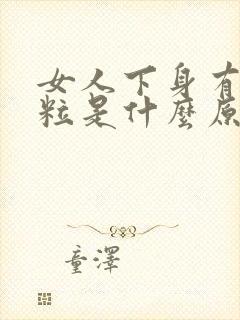 女人下身有
粒是什麼原
童澤